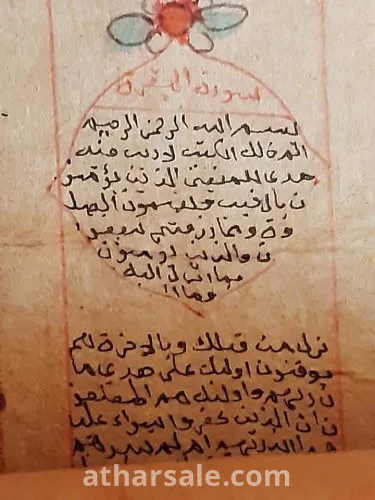 سورة البقرة
بسم الله الرحمن الرحيم
الم ذلك الكتب لا ريب فيه
هدى للمتقين الذين يؤمنو
ن بالغيب ويقيمون الصل
وة ومما رزقنهم ينفقو
ن والذين يؤمنون
بما انزل اليك
وما ا
نزل من قبلك وبالاخرة هم
يوقنون اولئك على هدى من
ربهم واولئك هم المفلحو
ن ان الذين كفروا سواء علي
هم انذرتهم ام لم تنذرهم
atharsale.com